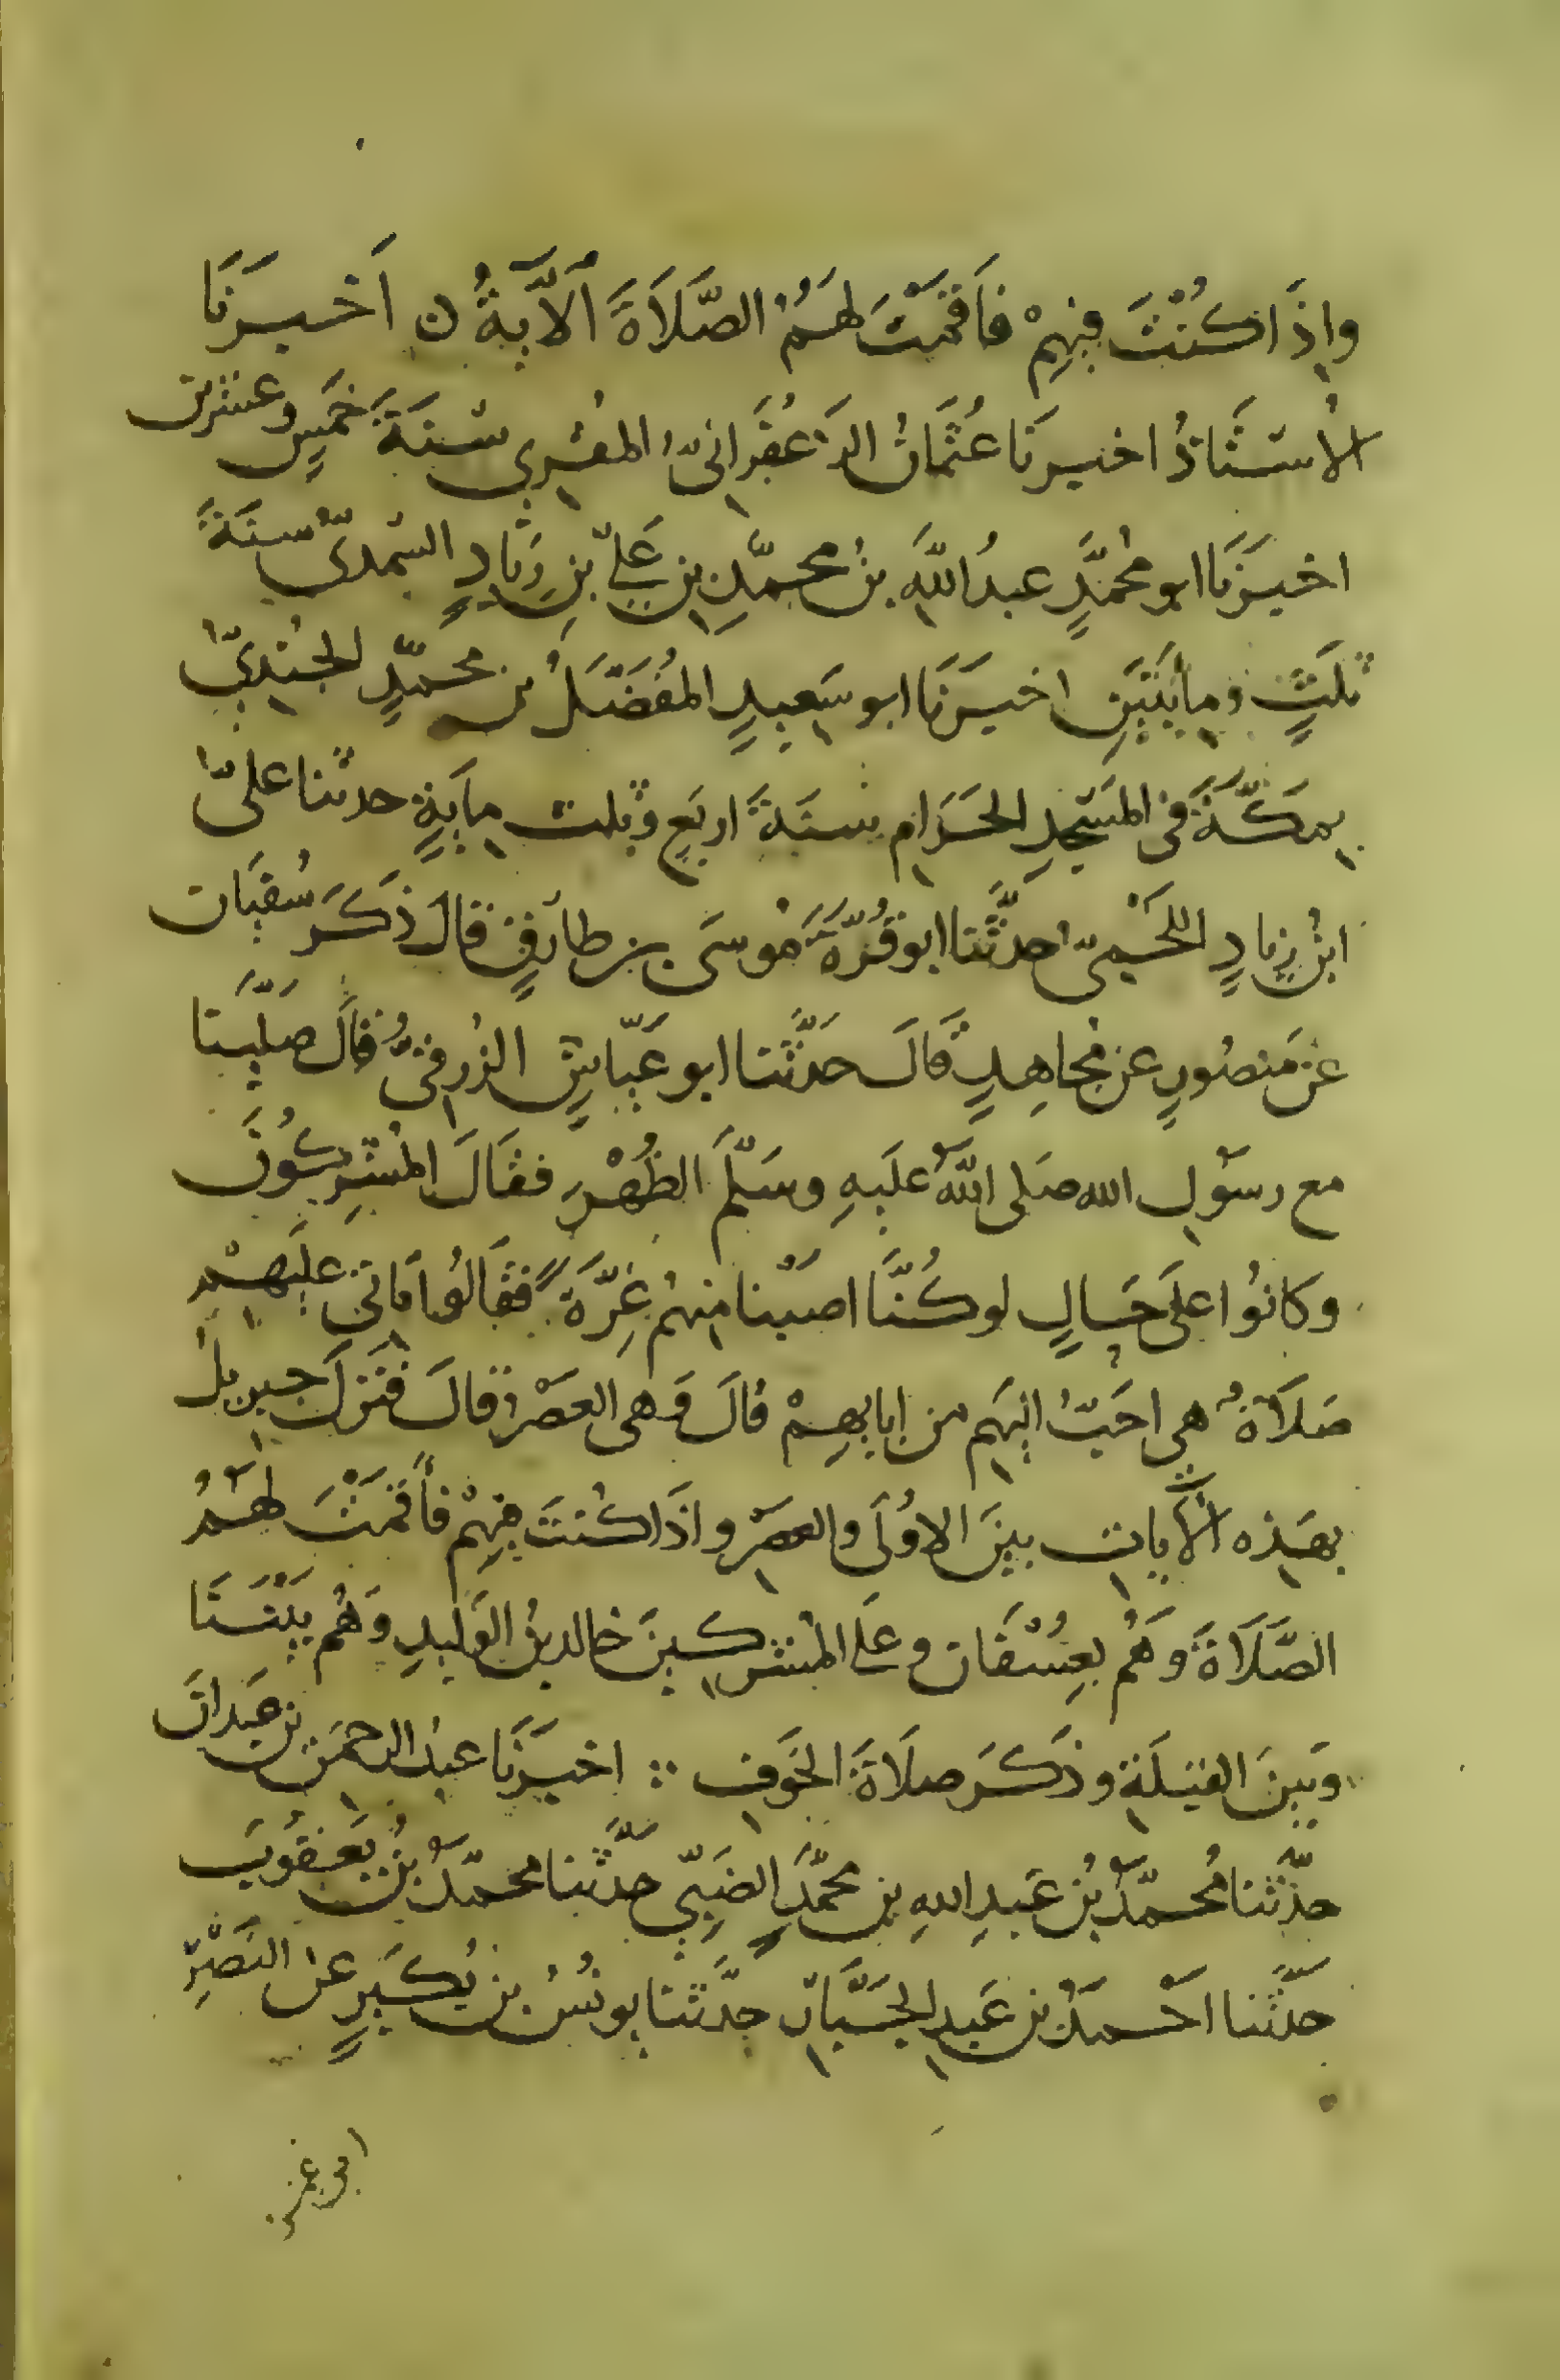 واِذَا كُنْتَ فِيهِمْ فَاَقَمْتَ لَهُمُ الصَّلَاةَ اَلْآيَةُ ن اَخْبَرَنَا
الأُسْتَاذُ اخبرنَا عُثْمَانُ الزَّعْفَرَانىُّ المقْرِى سَنَةَ خَمْسٍ وعشرين
اخبَرَنَا ابو مُحمَّدٍ عبدُ اللَّهِ بنُ محمَّدِ بنِ عَلىِّ بنِ زِيَادٍ السِّمّذِىُّ سنَةَ
ثلَثٍ ومِأيَتَيْنِ اخبَرَنَا ابو سَعِيدٍ المُفَضَّلُ بن محمّدٍ الجَنَدِىُّ
بِمَكَّةَ فى المَسْجِدِ الحَرَامِ سنَةَ اربَعٍ وثلث مِايَةٍ حدثنا علىُّ
ابْنُ زِيادٍ اللَّحْجِىُّ حدَّثَنا ابو قُرَّةَ مُوسَى بن طارِقٍ قالَ ذَكَرَ سُفيَان
عَنْ مَنصُورٍ عن مُجاهِدٍ قَالَ حَدَّثَنا ابو عَيَّاشٍ الزُّرَقىُّ قَالَ صَلَّيْنَا
مع رسُولِ الله صَلى اللَّهُ علَيهِ وسَلَّمَ الظُهْرَ فقَالَ المُشْرِكُونَ
وكانُوا علَى حَالٍ لو كُنَّا اصَبْنا مِنهُمْ غِرَّةً فقَالُوا تَاتى علَيهِمْ
صَلَاةٌ هى احَبُّ اليهِم من ابايِهِمْ قالَ وَهى العَصْرُ قالَ فنَزلَ جبريلُ
بهَذِه الآياتِ بينَ الاُولَى والعصرِ واذَا كُنتَ فِيهِمْ فأقمْتَ لهُمُ
الصَّلَاةَ وَهُم بعِسْفَان وعَلى المُشركينَ خالدُ بنُ الوَلِيدِ وَهُم بَيْنَنَا
وبينَ القِبْلَةِ وذكَرَ صلَاةَ الخَوفِ :: اخبَرَنَا عبدُ الرحمَنِ بن عَبدانَ
حدَّثَنا مُحمَّدُ بْنُ عَبدِ اللهِ بنِ محمَّدٍ الضَّبِّىّ حدَّثنا محمّدُ بنُ يَعقُوبَ
حَدَّثنا احْمَدُ بن عَبدِ الجَبَّارِ حدَّثنا يونُسُ بن بُكَيرٍ عن النَّضْرِ
ابى عمر